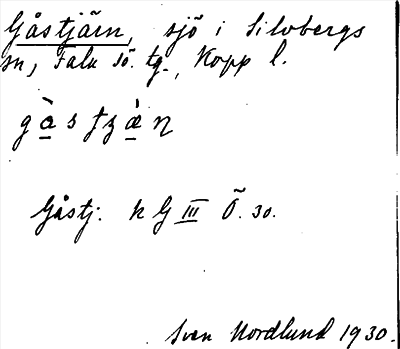 Gåstjärn, sjö i Silvbergs
sn, Falu sö. tg., Kopp l.
gàstʒæ̀ṇ
Gåstj. k G III Ö. 30.
Sven Nordlund 1930.